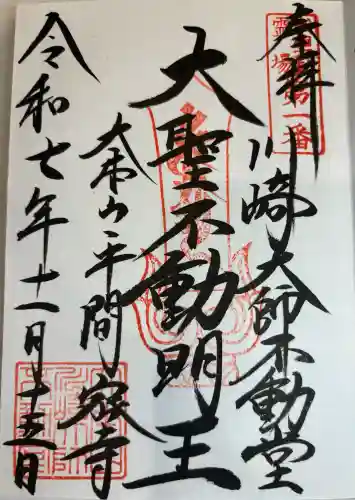 奉拝
川崎大師不動堂
大聖不動明王
大本山平間寺
令和七年十一月十五日
霊場第一番